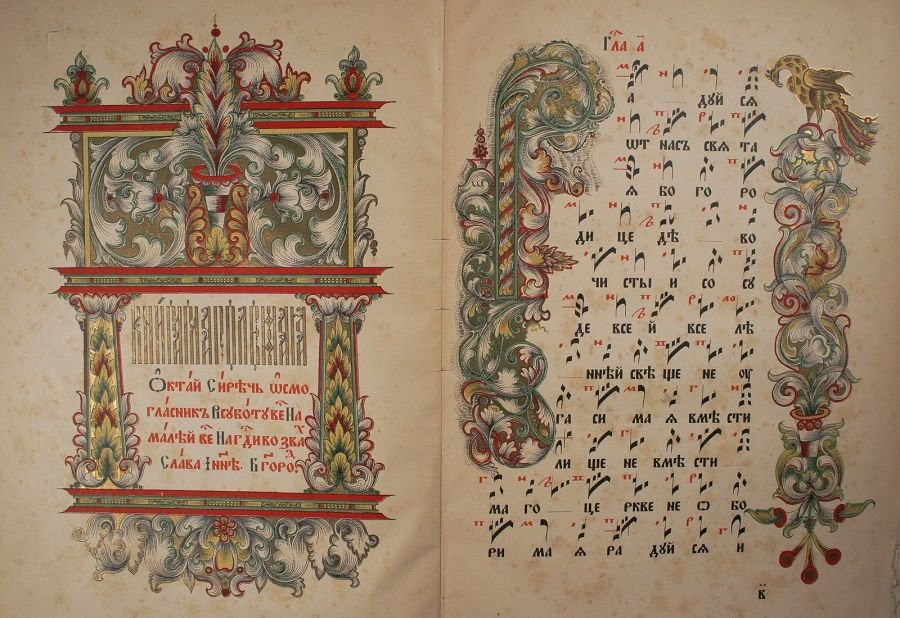 Ѻктай Сирѣчь ѡсмо
гласникъ Всуботу ве На
малѣй ве На гди возваⷯ
Слава Іннѣ. Бгороⷣ
Глаⷭ҇ а҃
Р а дуй сѧ
ѿ насъ свѧ та
ѧ бо го ро
ди це дѣ во
чи сты и со су
де все й все лѣ
ннѣй свѣ ще не оу
га си ма ѧ вмѣ сти
ли ще не вмѣ сти
ма го це ркве не ѡ бо
ри ма ѧ ра дуй сѧ и
в